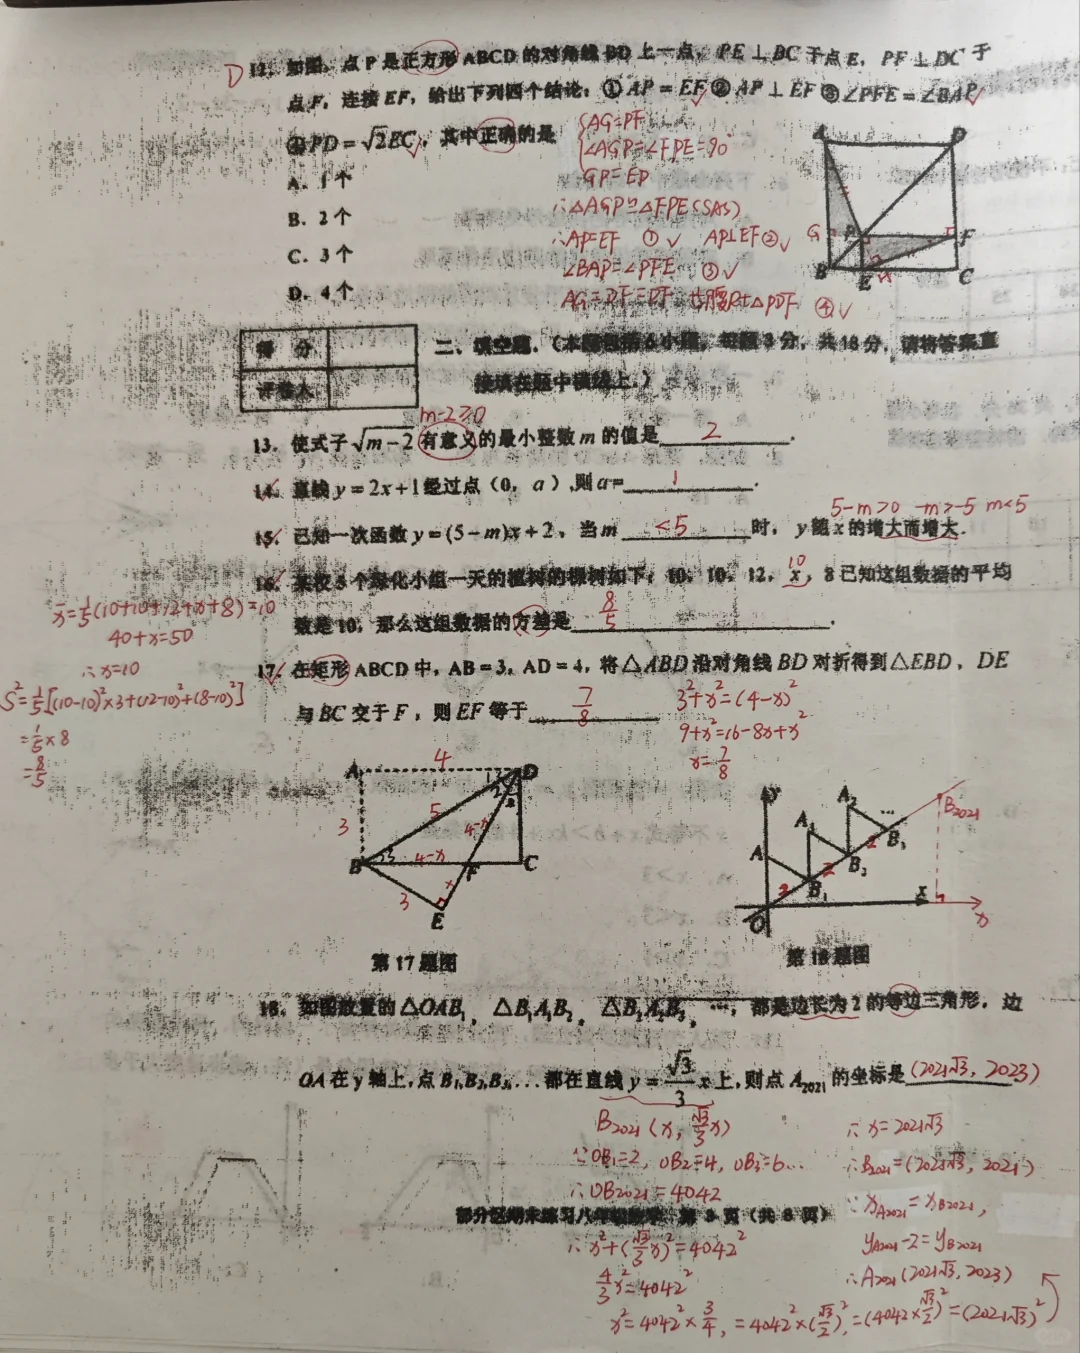 D 12. 如图，点P是正方形ABCD的对角线BD上一点，PE⊥BC于点E，PF⊥DC于
点F，连接EF，给出下列四个结论：①AP=EF✓②AP⊥EF③∠PFE=∠BAP✓
④PD=√2EC✓，其中正确的是
{AG=PF
∠AGP=∠FPE=90°
GP=EP
∴△AGP≌△FPE(SAS)
∴AP=EF ①✓ AP⊥EF②✓
∠BAP=∠PFE ③✓
④✓
A. 1个
B. 2个
C. 3个
D. 4个
A D
G P F
B E C
得 分
评卷人
二、填空题.（本题包括6小题，每题3分，共18分，请将答案直
接填在题中横线上.）
m-2≥0
13. 使式子√m-2有意义的最小整数m的值是 2 .
14. 直线y=2x+1经过点（0，a）,则a= 1 .
5-m>0 -m>-5 m<5
15. 已知一次函数y=(5-m)x+2，当m <5 时，y随x的增大而增大.
10
16. 某校5个绿化小组一天的植树的棵树如下：10，10，12，x，8已知这组数据的平均
数是10，那么这组数据的方差是 8/5 .
x̄=1/5(10+10+12+x+8)=10
40+x=50
∴x=10
S²=1/5[(10-10)²×3+(12-10)²+(8-10)²]
=1/5×8
=8/5
17. 在矩形ABCD中，AB=3，AD=4，将△ABD沿对角线BD对折得到△EBD，DE
与BC交于F，则EF等于 7/8
3²+x²=(4-x)²
9+x²=16-8x+x²
x=7/8
A 4 D
3 5 4-x
B 4-x F C
3 x
E
第17题图
y A₂ B2021
A A₁ B₃
B₂ B₁
O x x
第18题图
18. 如图放置的△OAB₁，△B₁A₁B₂，△B₂A₂B₃，…，都是边长为2的等边三角形，边
OA在y轴上,点B₁,B₂,B₃,…都在直线y=√3/3x上,则点A₂₀₂₁的坐标是 (2021√3, 2023)
B2021(x, √3/3x)
∵OB₁=2, OB₂=4, OB₃=6...
∴OB2021=4042
部分区期末练习八年级数学 第3页（共8页）
∴x²+(√3/3x)²=4042²
4/3x²=4042²
x²=4042²×3/4, =4042²×(√3/2)²,=(4042×√3/2)²=(2021√3)²
∴x=2021√3
∴B2021=(2021√3, 2021)
∵xA2021=xB2021,
yA2021-2=yB2021
∴A2021(2021√3, 2023)